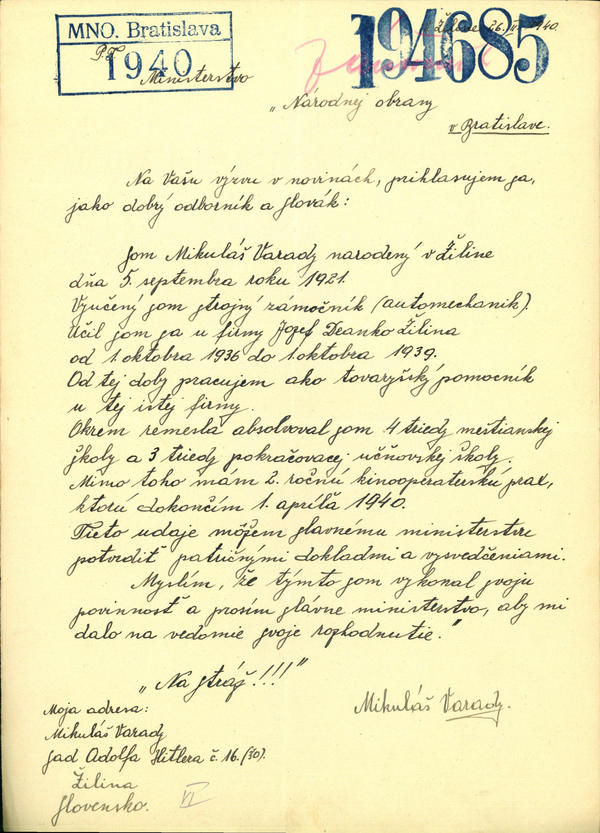 MNO. Bratislava
1940
194685
Žilina 26. II. 1940.
P.T.
Ministerstvo
„Národnej obrany
v Bratislave.
Na Vašu výzvu v novinách, prihlasujem sa,
jako dobrý odborník a Slovák:
Som Mikuláš Varady narodený v Žiline
dňa 5. septembra roku 1921.
Vyučený som strojný zámočník (automechanik).
Učil som sa u firmy Jozef Deanko Žilina
od 1. oktobra 1936 do 1. oktobra 1939.
Od tej doby pracujem ako tovaryšský pomocník
u tej istej firmy.
Okrem remesla absolvoval som 4 triedy meštianskej
školy a 3 triedy pokračovacej učňovskej školy.
Mimo toho mám 2. ročnú kinooperaterskú prax,
ktorú dokončím 1. apríla 1940.
Tieto udaje môžem slavnému ministerstvu
potvrdiť patričnými dokladmi a vysvedčeniami.
Myslím, že týmto som vykonal svoju
povinnosť a prosím slávne ministerstvo, aby mi
dalo na vedomie svoje rozhodnutie."
„Na stráž!!!"
Mikuláš Varady.
Moja adresa:
Mikuláš Varady
sad Adolfa Hitlera č. 16. (30).
Žilina
Slovensko.
VI